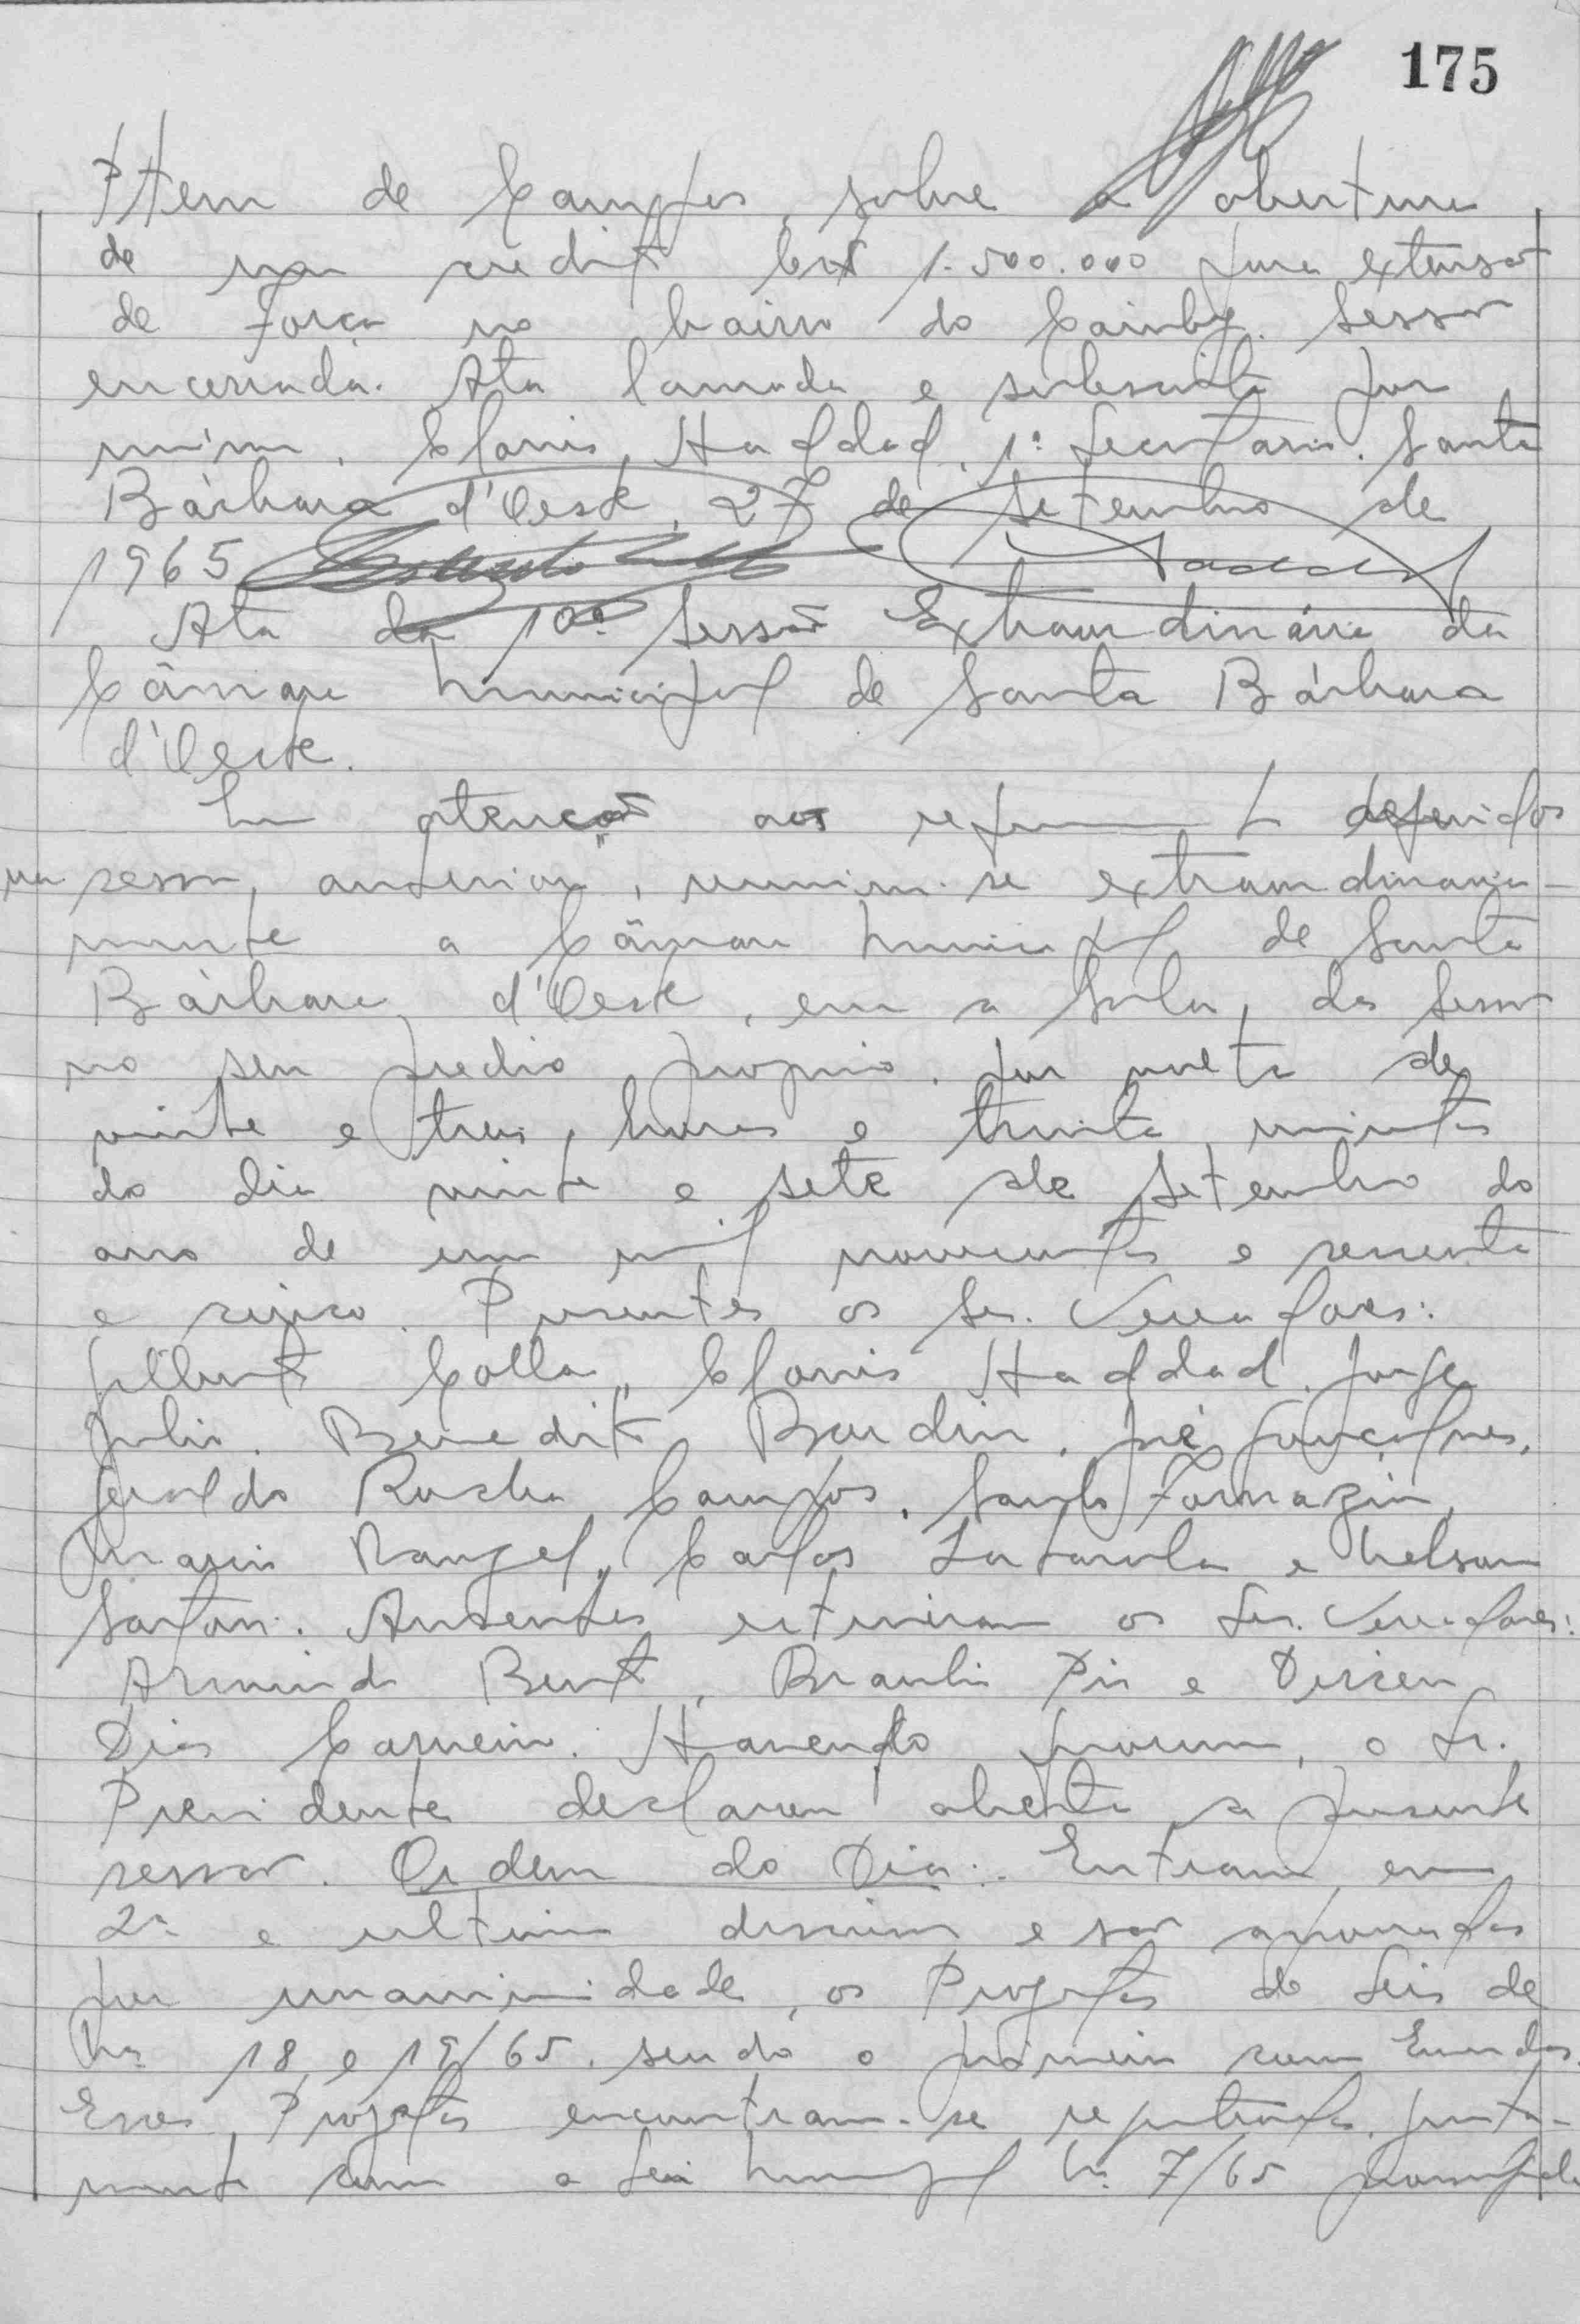 175
de Campos, sobre a abertura
de um credito Cr$ 1.500.000 para extensão
de força no bairro do Cainby. Sessão
encerrada. Ata lavrada e subscrita por
mim, Clovis Haddad, 1º Secretario. Santa
Bárbara d'Oeste, 27 de Setembro de
1965
Ata da 10ª Sessão Extraordinária da
Câmara Municipal de Santa Bárbara
d'Oeste.
Em atenção aos deferidos
na sessão anterior, reuniu-se extraordinaria-
mente a Câmara Municipal de Santa
Bárbara d'Oeste, em a Sala das Sessões
no seu predio proprio, por volta de
vinte e tres horas e trinta minutos
do dia vinte e sete de Setembro do
ano de um mil novecentos e sessenta
e cinco. Presentes os Srs. Vereadores:
Gilberto Colla, Clovis Haddad, Jorge
Julio, Benedito Bardin, José Gonçalves,
Geraldo Rocha Campos, Santo Fornazin,
Mario Rangel, Carlos e Nelson
Sartori. Ausentes estiveram os Srs. Vereadores:
Armindo Bento, Braulio Pio e Dirceu
Dias Carneiro. Havendo quorum, o Sr.
Presidente declarou aberta a presente
sessão. Ordem do Dia:- Entram em
2ª e ultima discussão e são aprovados
por unanimidade, os Projetos de Leis de
Nº 18 e 19/65, sendo o primeiro com Emendas.
Esses Projetos encontram-se registrados junta-
mente com a Lei Municipal Nº 7/65 promulgada